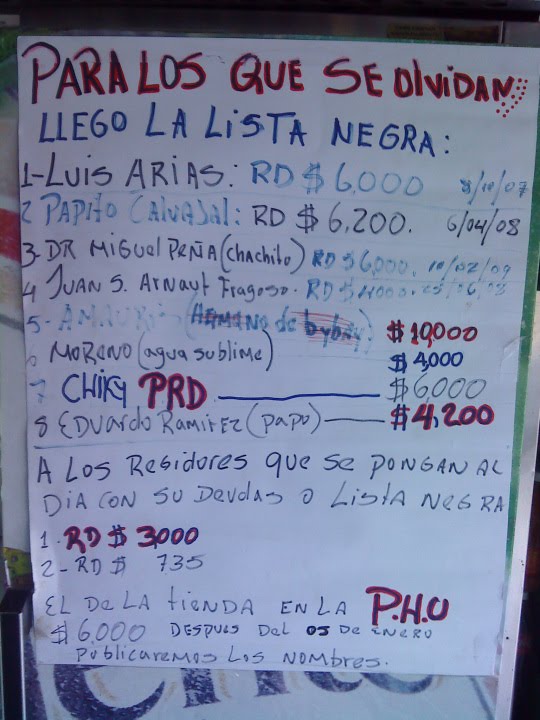 PARA LOS QUE SE OlVIDAN
LLEGO LA LISTA NEGRA:
1-LUIS ARIAS: RD $ 6,000 8/10/07
2 PAPITO CALVAJAL: RD $ 6,200. 6/04/08
3- DR MIGUEL PEÑA (chachito) RD $ 6,000. 10/02/09
4 JUAN S. ARNAUT FRAGOSO. RD $
5- AMAURIS (HERMANO de byby) $ 10,000
6 MORENO (agua sublime) $ 4,000
7 CHIKY PRD $ 6,000
8 EDUARDO RAMIREZ (PAPO) $ 4,200
A LOS REGIDORES QUE SE PONGAN AL
DIA CON SU DEUDAS O LISTA NEGRA
1. RD $ 3,000
2- RD $ 735
EL DE LA tIENDA EN LA P.H.U
$ 6,000 DESPUES DEL 05 DE ENERO
PUBLICAREMOS LOS NOMBRES.